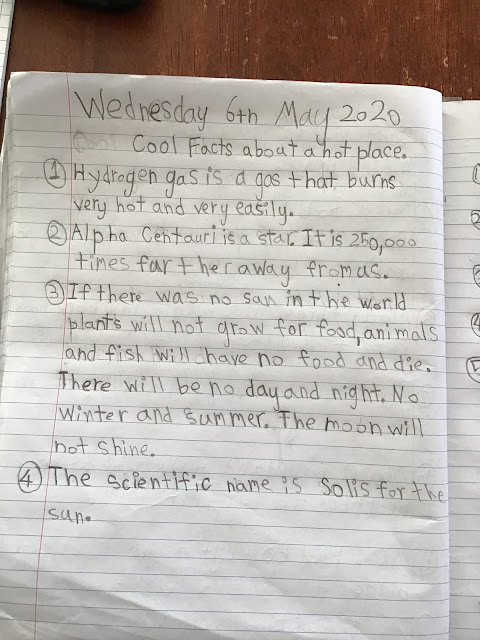 Wednesday 6th May 2020
Cool Facts about a hot place.
1 Hydrogen gas is a gas that burns
very hot and very easily.
2 Alpha Centauri is a star. It is 250,000
times further away from us.
3 If there was no sun in the world
plants will not grow for food, animals
and fish will have no food and die.
There will be no day and night. No
winter and summer. The moon will
not shine.
4 The scientific name is Solis for the
sun.